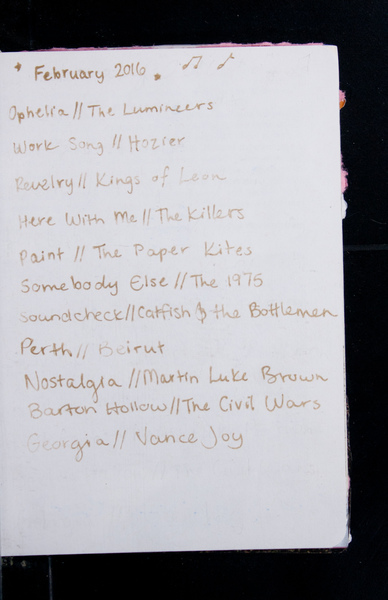 February 2016
Ophelia // The Lumineers
Work Song // Hozier
Revelry // Kings of Leon
Here With Me // The Killers
Paint // The Paper Kites
Somebody Else // The 1975
Soundcheck // Catfish & the Bottlemen
Perth // Beirut
Nostalgia // Martin Luke Brown
Barton Hollow // The Civil Wars
Georgia // Vance Joy